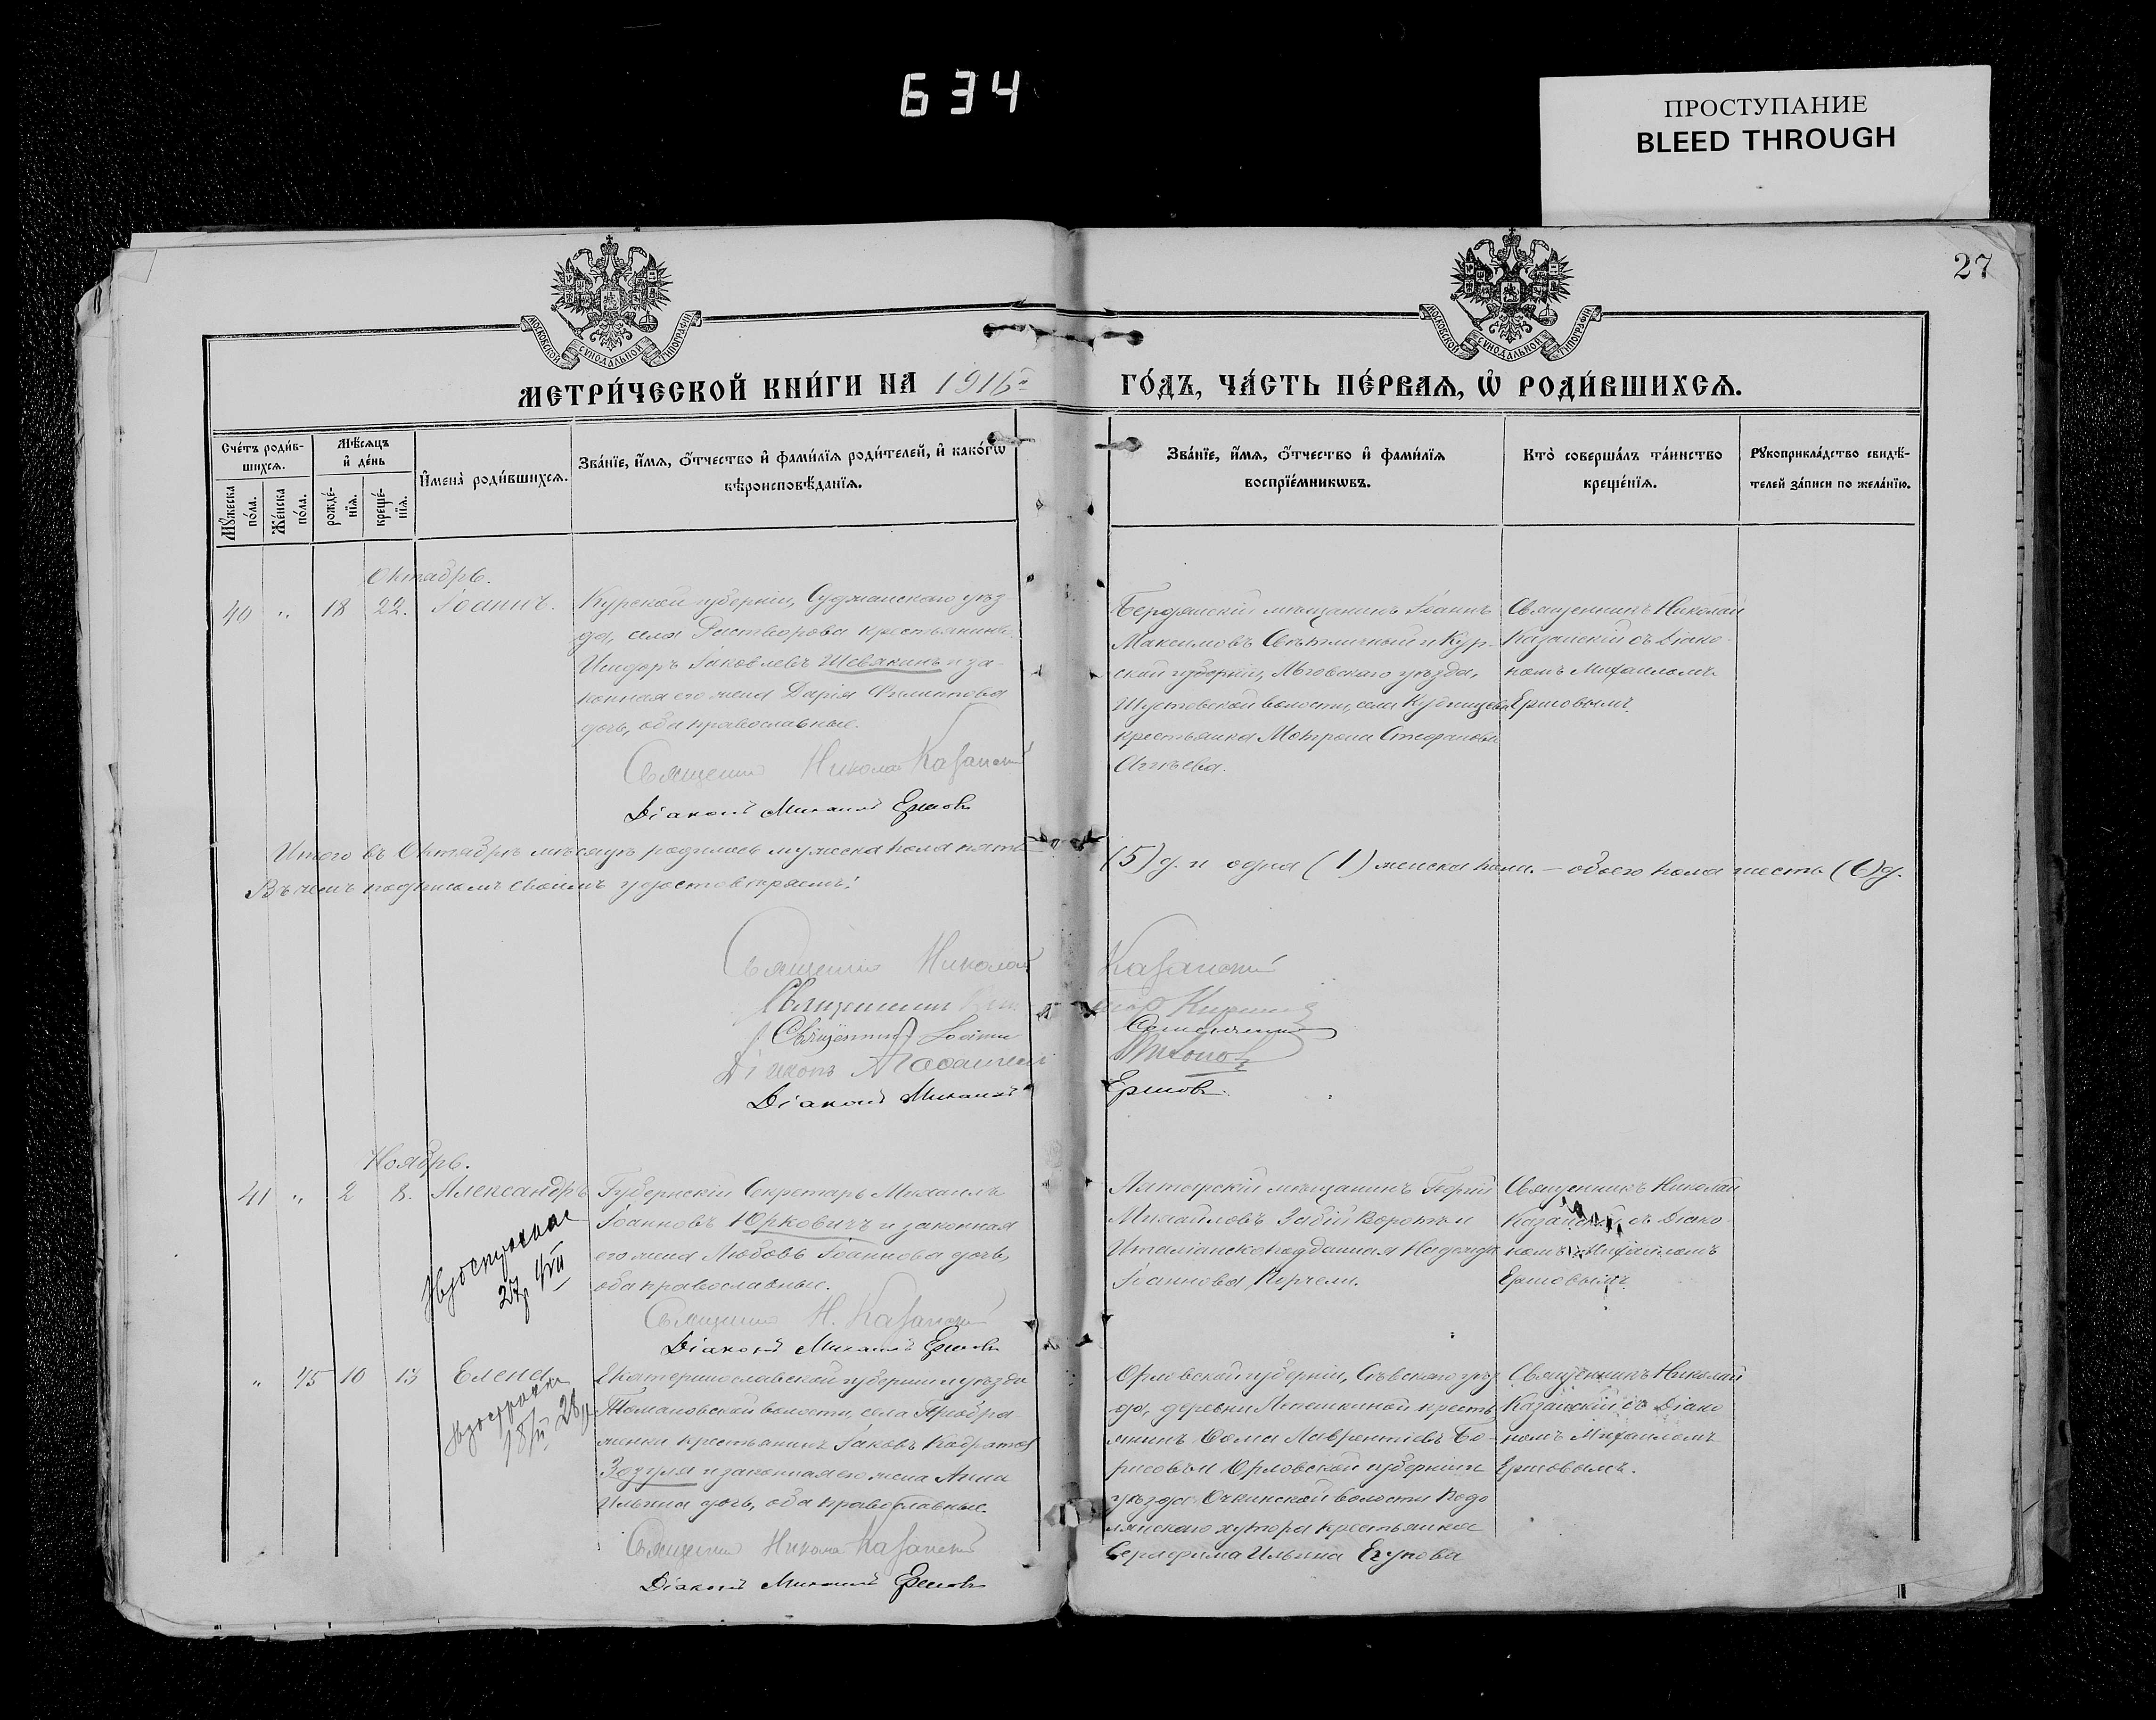 634
ПРОСТУПАНИЕ
BLEED THROUGH
27
МОСКОВСКОЙ СѴНОДАЛЬНОЙ ТИПОГРАФІИ
МОСКОВСКОЙ СѴНОДАЛЬНОЙ ТИПОГРАФІИ
МЕТРИ́ЧЕСКОЙ КНИ́ГИ НА 1916
ГО́ДЪ, ЧА́СТЬ ПЕ́РВАѦ, Ѽ РОДИ́ВШИХСѦ.
Сче́тъ роди́в-
шихсѧ.
Мꙋ́жеска
по́ла.
Же́нска
по́ла.
Мѣ́сѧцъ
и҆ де́нь
рожде́-
нїѧ.
креще́-
нїѧ.
И҆мена̀ роди́вшихсѧ.
Зва́нїе, и҆́мѧ, ѻ҆́тчество и҆ фами́лїѧ роди́телей, и҆ како́гѡ
вѣроисповѣ́данїѧ.
Зва́нїе, и҆́мѧ, ѻ҆́тчество и҆ фами́лїѧ
воспрїе́мникѡвъ.
Кто̀ соверша́лъ та́инство
креще́нїѧ.
Рꙋкоприкла́дство свидѣ́-
телей за́писи по жела́нїю.
Октябрь.
40 " 18 22. Іоаннъ.
Курской губерніи, Суджанскаго уѣз-
да, села Растворова крестьянинъ
Исидоръ Іаковлевъ Шевякинъ и за-
конная его жена Дарія Филиппова
дочь, оба православные.
Священникъ Николай Казанскій
Діаконъ Михаилъ Ершовъ
Бердянскій мѣщанинъ Іоаннъ
Максимовъ Свѣтличный и Кур-
ской губерніи, Льговскаго уѣзда,
Шустовской волости, села
крестьянка Мотрона Стефанова
Священникъ Николай
Казанскій съ Діако-
номъ Михаиломъ
Ершовымъ.
Итого въ Октябрѣ мѣсяцѣ родилось мужеска пола пять
(5) д. и одна (1) женска пола. — обоего пола шесть (6) д.
Въ чемъ подписомъ своимъ удостовѣряемъ:
Священникъ Николай Казанскій
Священникъ
Священникъ Іоаннъ
Діаконъ
Діаконъ Михаилъ Ершовъ.
Ноябрь.
41 " 2 8. Александръ
27
Губернскій Секретарь Михаилъ
Іоанновъ Юрковичъ и законная
его жена Любовь Іоаннова дочь,
оба православные.
Священникъ Н. Казанскій
Діаконъ Михаилъ Ершовъ
мѣщанинъ Георгій
Михайловъ Забій Ворота и
Италіанско-подданная Надежда
Іоаннова
Священникъ Николай
Казанскій съ Діако-
номъ Михаиломъ
Ершовымъ.
" 45 10 13 Елена
Екатеринославской губерніи и уѣзда
Томаковской волости, села Преобра-
женки крестьянинъ Іаковъ Кодратов
Зозуля и законная его жена Анна
Ильина дочь, оба православные.
Священникъ Николай Казанскій
Діаконъ Михаилъ Ершовъ
Орловской губерніи, Сѣвскаго уѣз
да, деревни кресть
янинъ Ѳома Лаврентіевъ Бо-
рисовъ и Орловской губерніи и
уѣзда волости Подо
лянскаго хутора крестьянка
Серафима Ильина Егупова
Священникъ Николай
Казанскій съ Діако
номъ Михаиломъ
Ершовымъ.